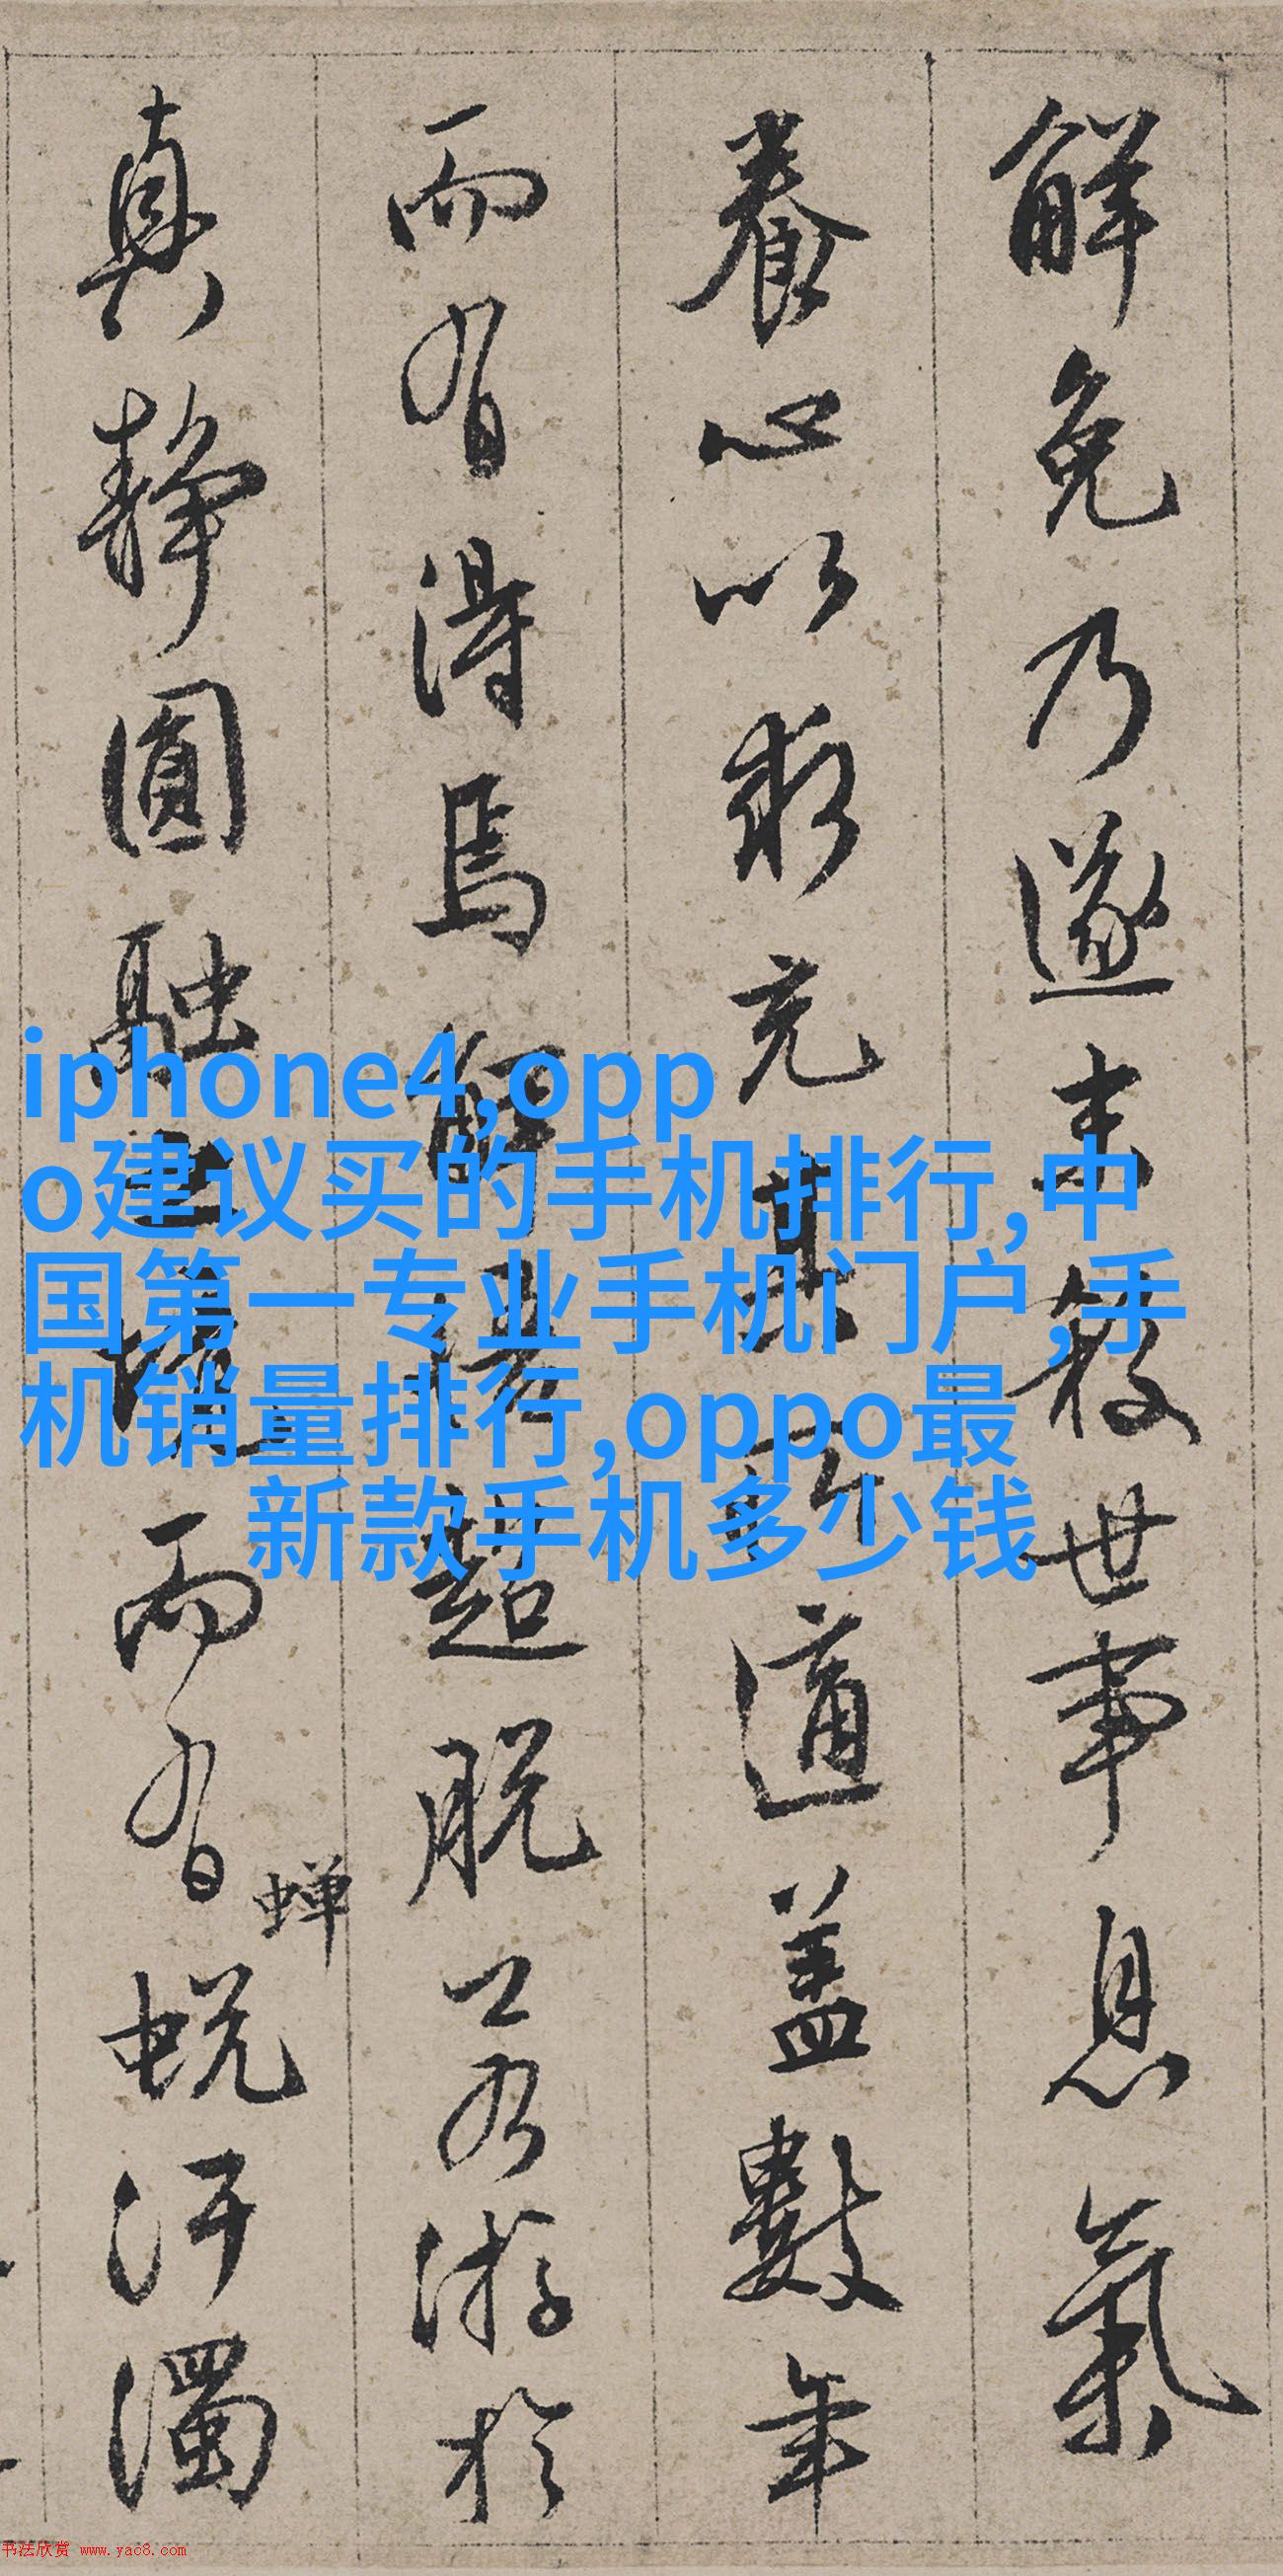 解免乃遂未蔽世事息氣
養心以求充其所適蓋數年
而有得焉解得超脫公為游於
真靜圓融之境而有蛻汙濁
蝉
iphone4,opp
o建议买的手机排行,中
国第一专业手机门户,手
机销量排行,oppo最
新款手机多少钱
书法欣赏 www.yac8.com